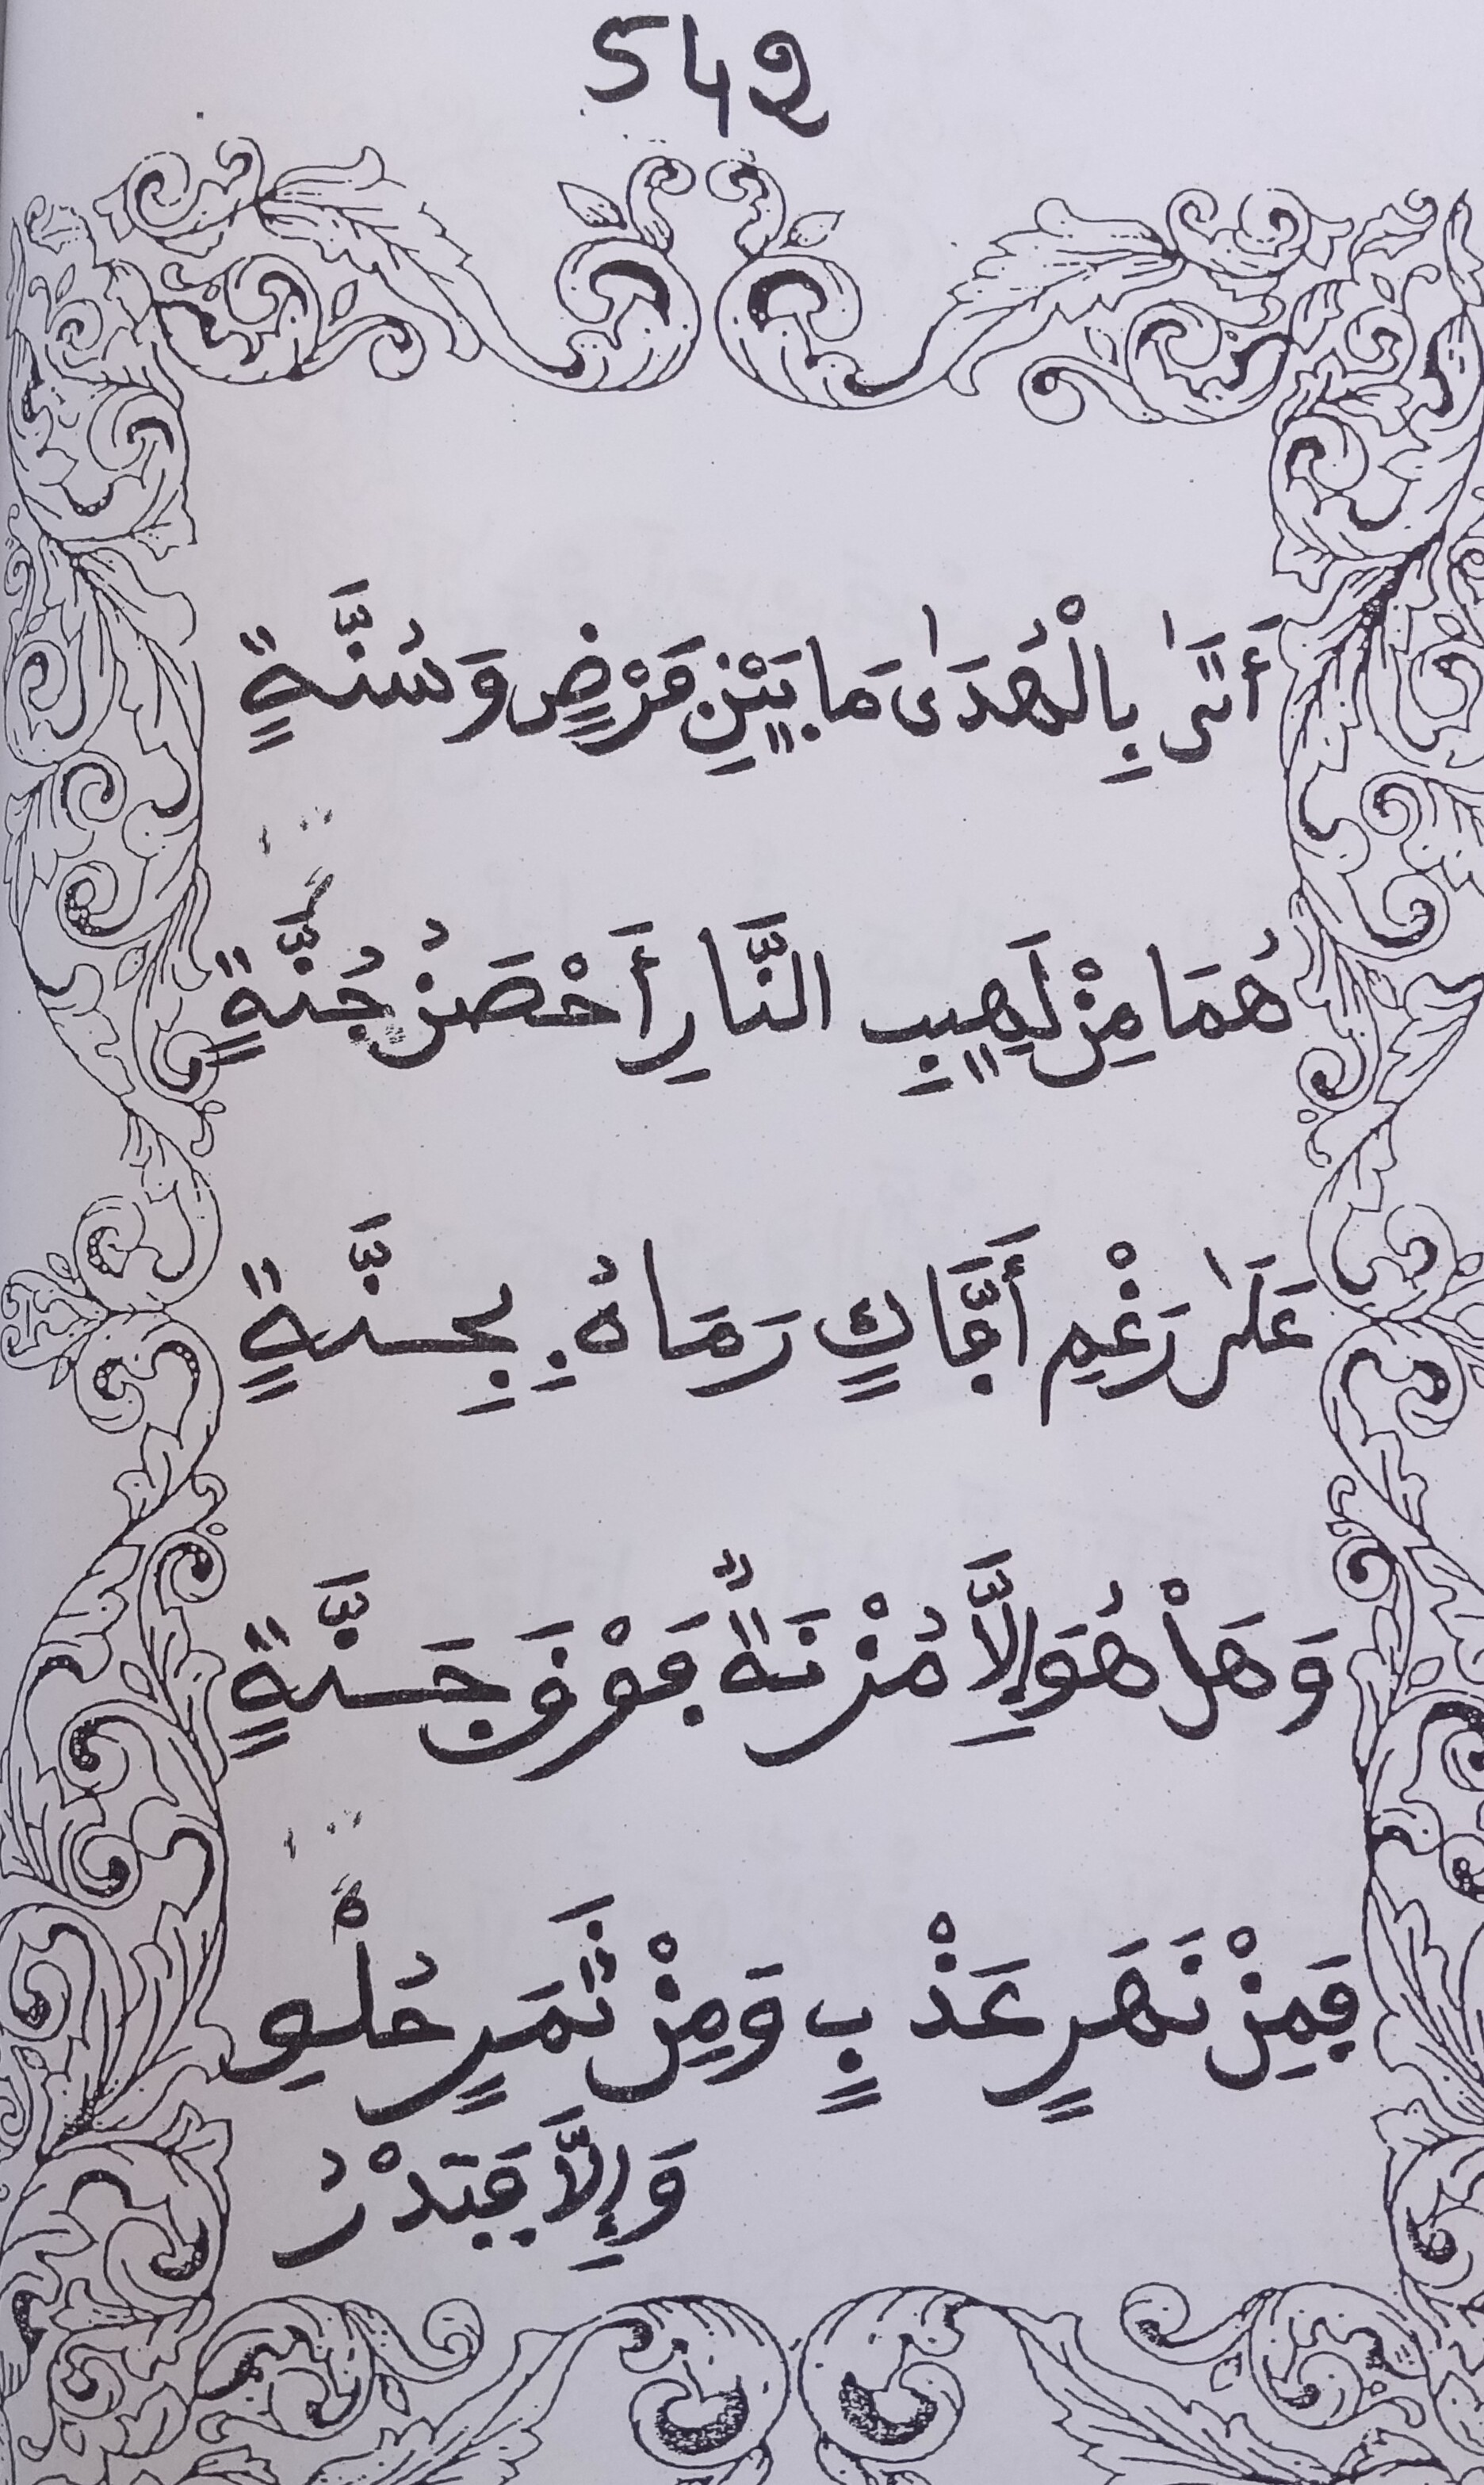 542
أَتَىٰ بِالْهُدَىٰ مَا بَيْنِ فَرْضٍ وَسُنَّةٍ
هُمَا مِنْ لَهِيبِ النَّارِ أَحْصَنُ جُنَّةٍ
عَلَىٰ رَغْمِ أَفَّاكٍ رَمَاهُ بِجِنَّةٍ
وَهَلْ هُوَ إِلَّا مُزْنَةٌ فَوْقَ جَنَّةٍ
فَمِنْ نَهَرٍ عَذْبٍ وَمِنْ ثَمَرٍ حُلْوِ
وَإِلَّا فَبَدْرُ